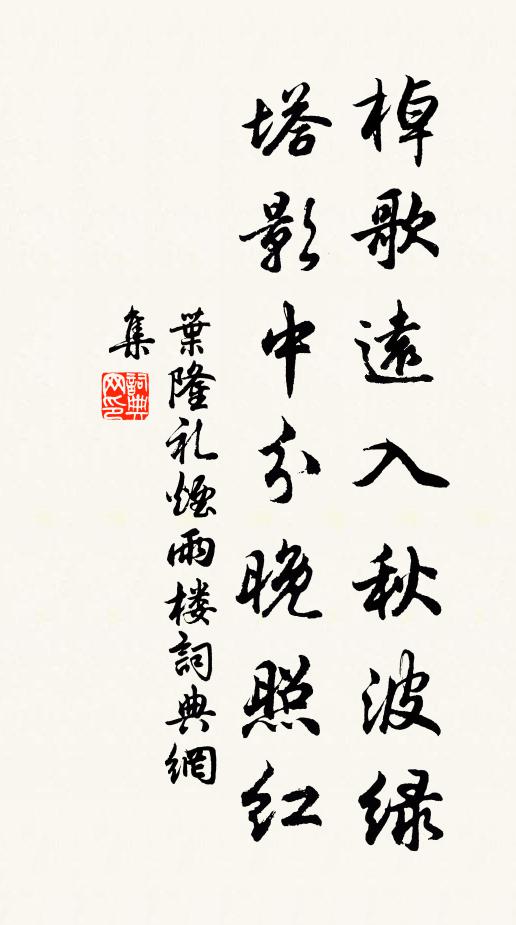 棹歌遠入秋波緑
塔影中分晚照红
葉隆礼煙雨楼詞典網
集
詞典
网印